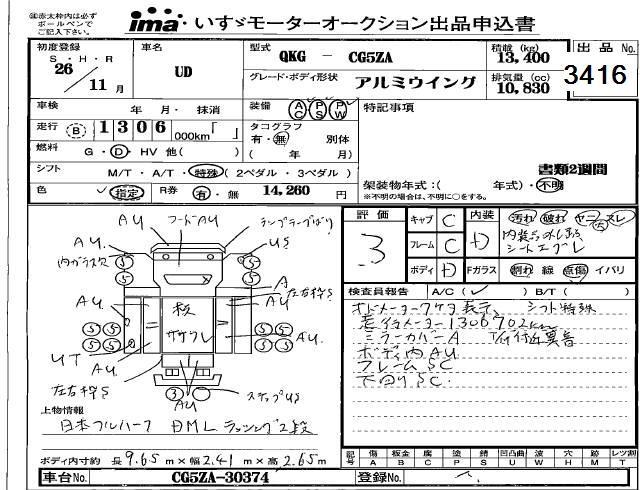 ㊟赤太枠内は必ず
ボールペンで
ご記入下さい。
ima いすゞモーターオークション出品申込書
初度登録
S・H・R
26/11月
車名
UD
型式 QKG － CG5ZA
グレード・ボディ形状 アルミウイング
積載 (kg)
13,400
排気量 (cc)
10,830
出品 No.
3416
車検 年 月・抹消
走行 B 1306 000km「 」
燃料 G・D・HV 他( )
シフト M/T・A/T・特殊 (2ペダル・3ペダル)
色 指定 R券 有・無 14,260 円
装備 AC PS PW
タコグラフ 有・無 別体
( 年 月)
特記事項
書類2週間
架装物年式:( 年式)・不明
※不明の場合は、不明に○をする。
評価 3
キャブ C
フレーム C
ボディ D
内装 D
汚れ 破れ ヤニ スレ
シートエグレ
Fガラス 割れ 線 点傷 イバリ
検査員報告 A/C( ✓ ) B/T( )
シフト特殊
走行メーター1306702km
ミラーカバーA 下廻り異音
ボディ内AU
フレームSC
下廻りSC
AU フードAU ランプ
AU. US
内ガラス A
左右枠S
AU 板 ササクレ AU
AU. AU.
UT
左右枠S
3 AU ステップUS
上物情報
日本フルハーフ DML ラッシング2段
ボディ内寸約 長 9.65 m×幅 2.41 m×高 2.65 m
記号 傷A 板金B 腐C 塗P 錆S 凹凸曲U 波W 穴H 跡M レツ割T
車台No. CG5ZA-30374
登録No.